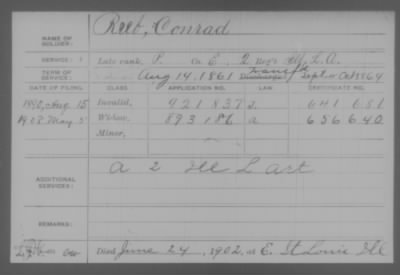 NAME OF SOLDIER: Reeb, Conrad
SERVICE: Late rank, P. Co. E, 2 Ill. L. A.
TERM OF SERVICE: Aug 14, 1861 Discharged
DATE OF FILING. CLASS. APPLICATION NO. LAW. CERTIFICATE NO.
1890, Aug 15 Invalid, 921 837 641 681
1908 May 5 Widow, 893 186 656 640
Minor,
ADDITIONAL SERVICES: A 2 Ill L Art
REMARKS:
Died June 24, 1902, at E. St Louis Ill